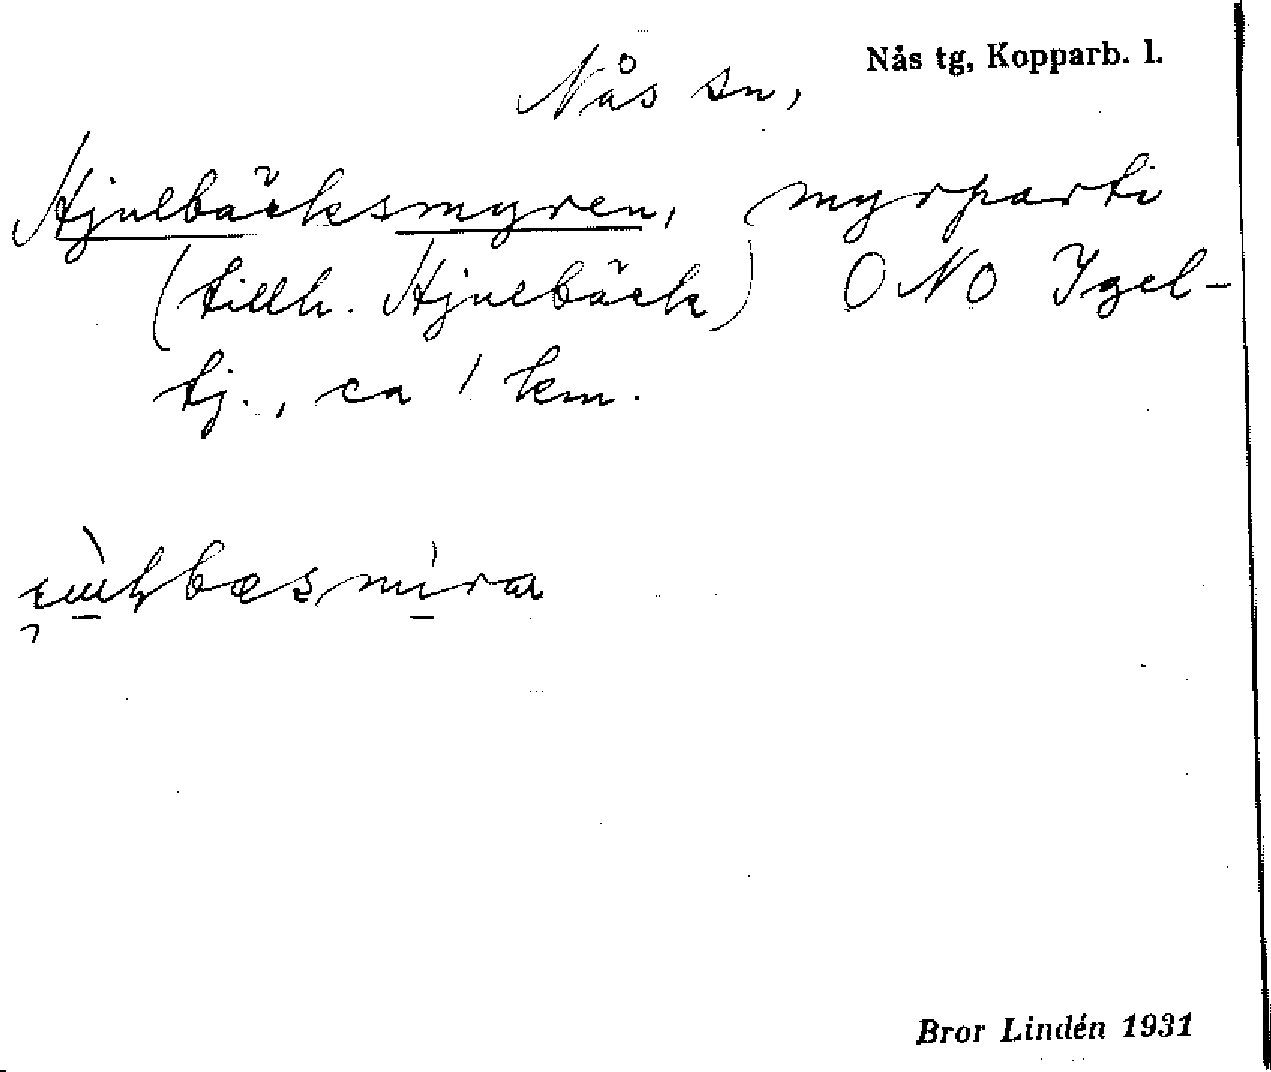 Nås tg, Kopparb. l.
Nås sn,
Hjulbäcksmyren, myrparti
(tillh. Hjulbäck) ONO Igel-
tj., ca 1 km.
Bror Lindén 1931